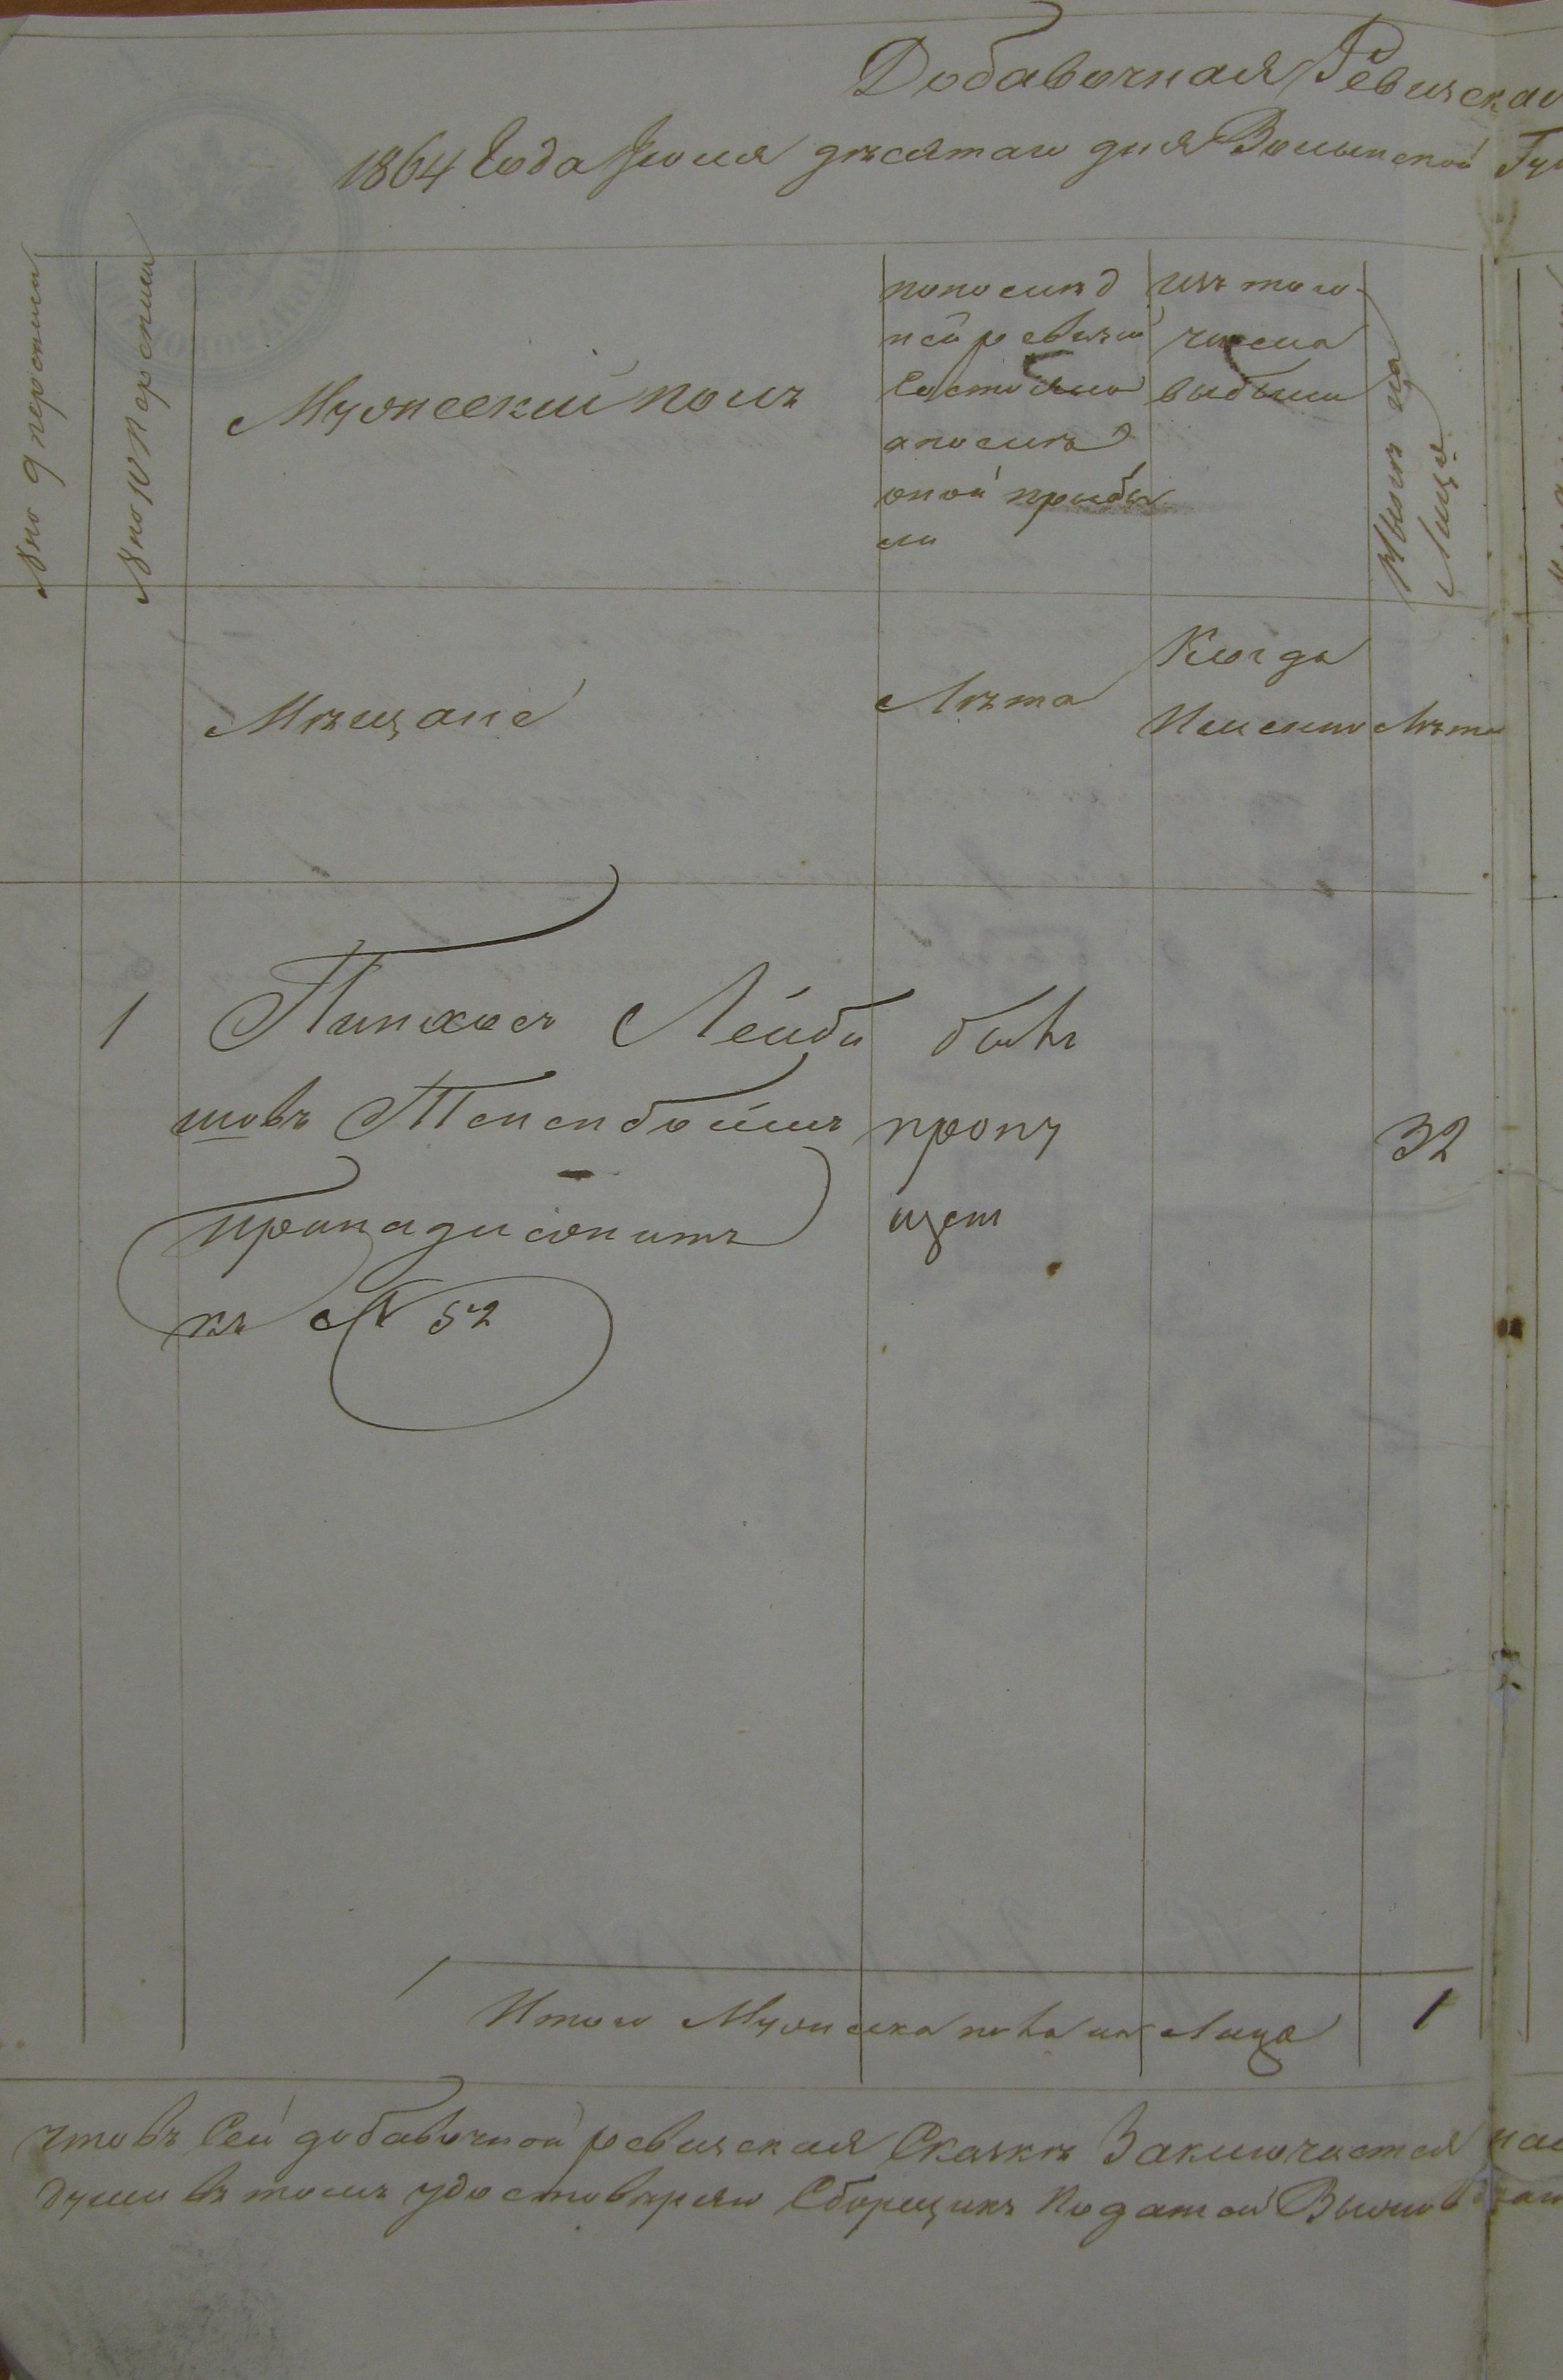 Добавочная Ревизская
1864 Года Июня десятаго дня Волынской Гу
№ по 9 переписи
№ по 10 Переписи
Мужеский полъ
по послѣд
ней ревизіи
Состояло
а послѣ
оной прибы
ли
изъ того
числа
выбыли
Нынѣ на
Лицо
Мѣщане
Лѣта
Когда
Именно
Лѣта
1 Пинхосъ Лейби
шовъ Тененбоймъ
принадлежитъ
къ № 52
былъ
пропу
щен
32
Итого Мужеска пола на Лицо 1
что въ Сей добавочной ревизская Сказкѣ Заключается
души въ томъ удостовѣряю Сборщикъ Податей